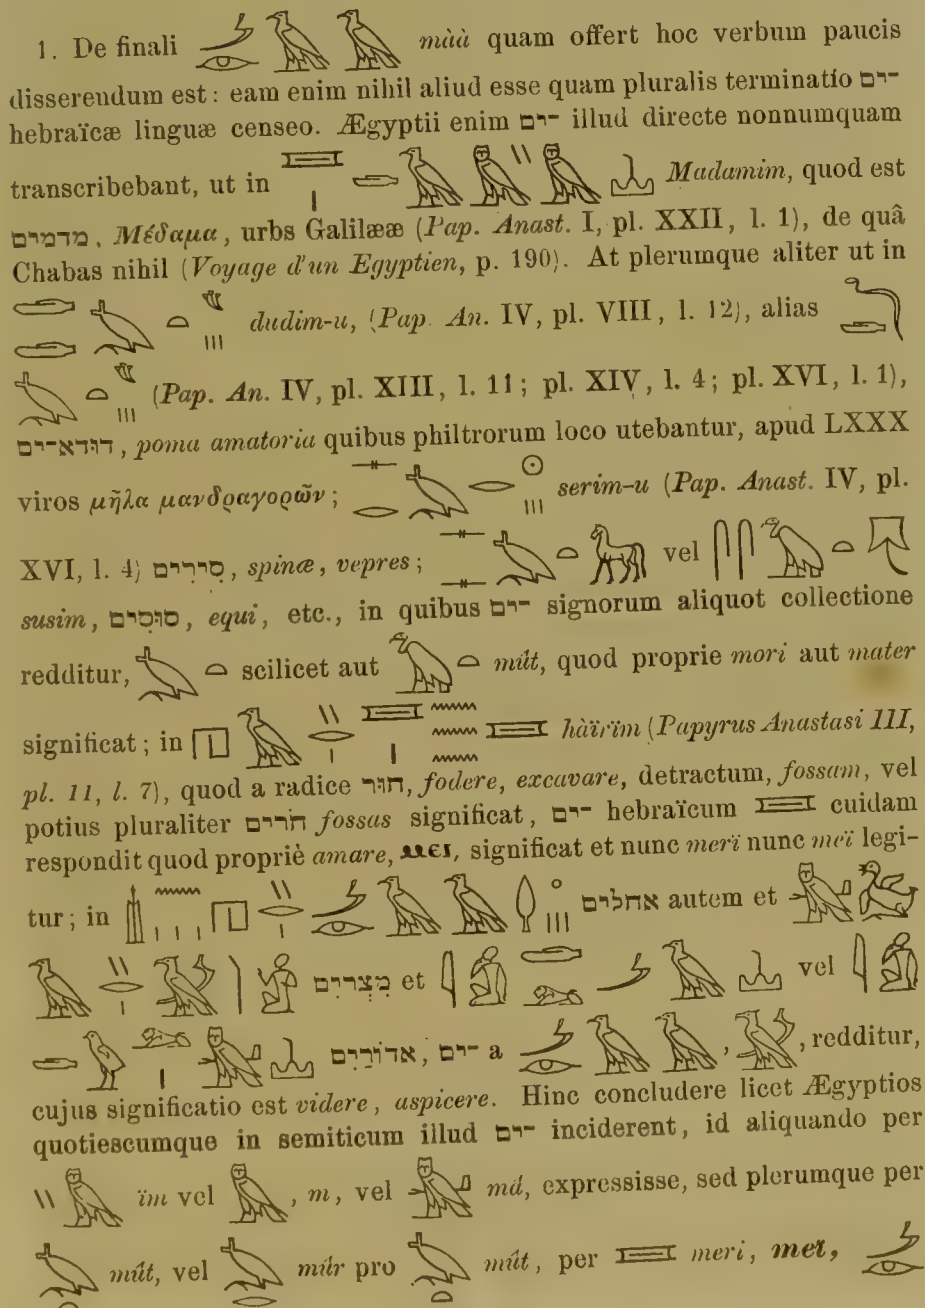 1. De finali màà quam offert hoc verbum paucis
disserendum est : eam enim nihil aliud esse quam pluralis terminatio ־ים
hebraïcæ linguæ censeo. Ægyptii enim ־ים illud directe nonnumquam
transcribebant, ut in Madamim, quod est
מדמים, Μέδαμα, urbs Galilææ (Pap. Anast. I, pl. XXII, l. 1), de quâ
Chabas nihil (Voyage d'un Egyptien, p. 190). At plerumque aliter ut in
dudim-u, (Pap. An. IV, pl. VIII, l. 12), alias
(Pap. An. IV, pl. XIII, l. 11 ; pl. XIV, l. 4 ; pl. XVI, l. 1),
דּוּדא־ים, poma amatoria quibus philtrorum loco utebantur, apud LXXX
viros μῆλα μανδραγορῶν ; serim-u (Pap. Anast. IV, pl.
XVI, l. 4) סִירִים, spinæ, vepres ; vel
susim, סוּסִים, equi, etc., in quibus ־ים signorum aliquot collectione
redditur, scilicet aut mût, quod proprie mori aut mater
significat ; in hàïrïm (Papyrus Anastasi III,
pl. 11, l. 7), quod a radice חור, fodere, excavare, detractum, fossam, vel
potius pluraliter חֹרים fossas significat, ־ים hebraïcum cuidam
respondit quod propriè amare, ⲙⲉⲓ, significat et nunc meri nunc meï legi-
tur ; in אחלים autem et
מִצְרִים et vel
אדוֹרַיִם, ־ים a , , redditur,
cujus significatio est videre, aspicere. Hinc concludere licet Ægyptios
quotiescumque in semiticum illud ־ים inciderent, id aliquando per
ïm vel , m, vel má, expressisse, sed plerumque per
mût, vel múr pro mût, per meri, meï,